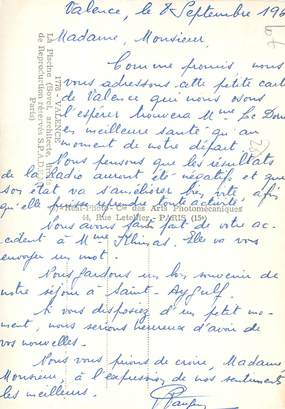 Valence, le 8 Septembre 196
Madame, Monsieur
Comme promis nous
vous adressons cette petite carte
de Valence qui nous osons
l'espérer trouvera Mme Le
en meilleure santé qu'au
moment de notre départ.
Nous pensons que les résultats
de la Radio auront été négatif et que
son état va s'améliorer bien vite afin
qu'elle puisse reprendre toute activité.
Nous avons fait part de votre ac-
cident à Mme Elle va vous
envoyer un mot.
Nous gardons un bon souvenir de
notre séjour à Saint-Aygulf.
Si vous disposez d'un petit mo-
ment, nous serions heureux d'avoir de
vos nouvelles.
Nous vous prions de croire, Madame
Monsieur, à l'expression de nos sentiments
les meilleurs.
1778 - VALENCE
La Piscine (Bovet, architecte,
de Reproduction réservés S.P.A.D.E.M.
Paris)
Cie des Arts Photomécaniques
44, Rue Letellier - PARIS (15e)